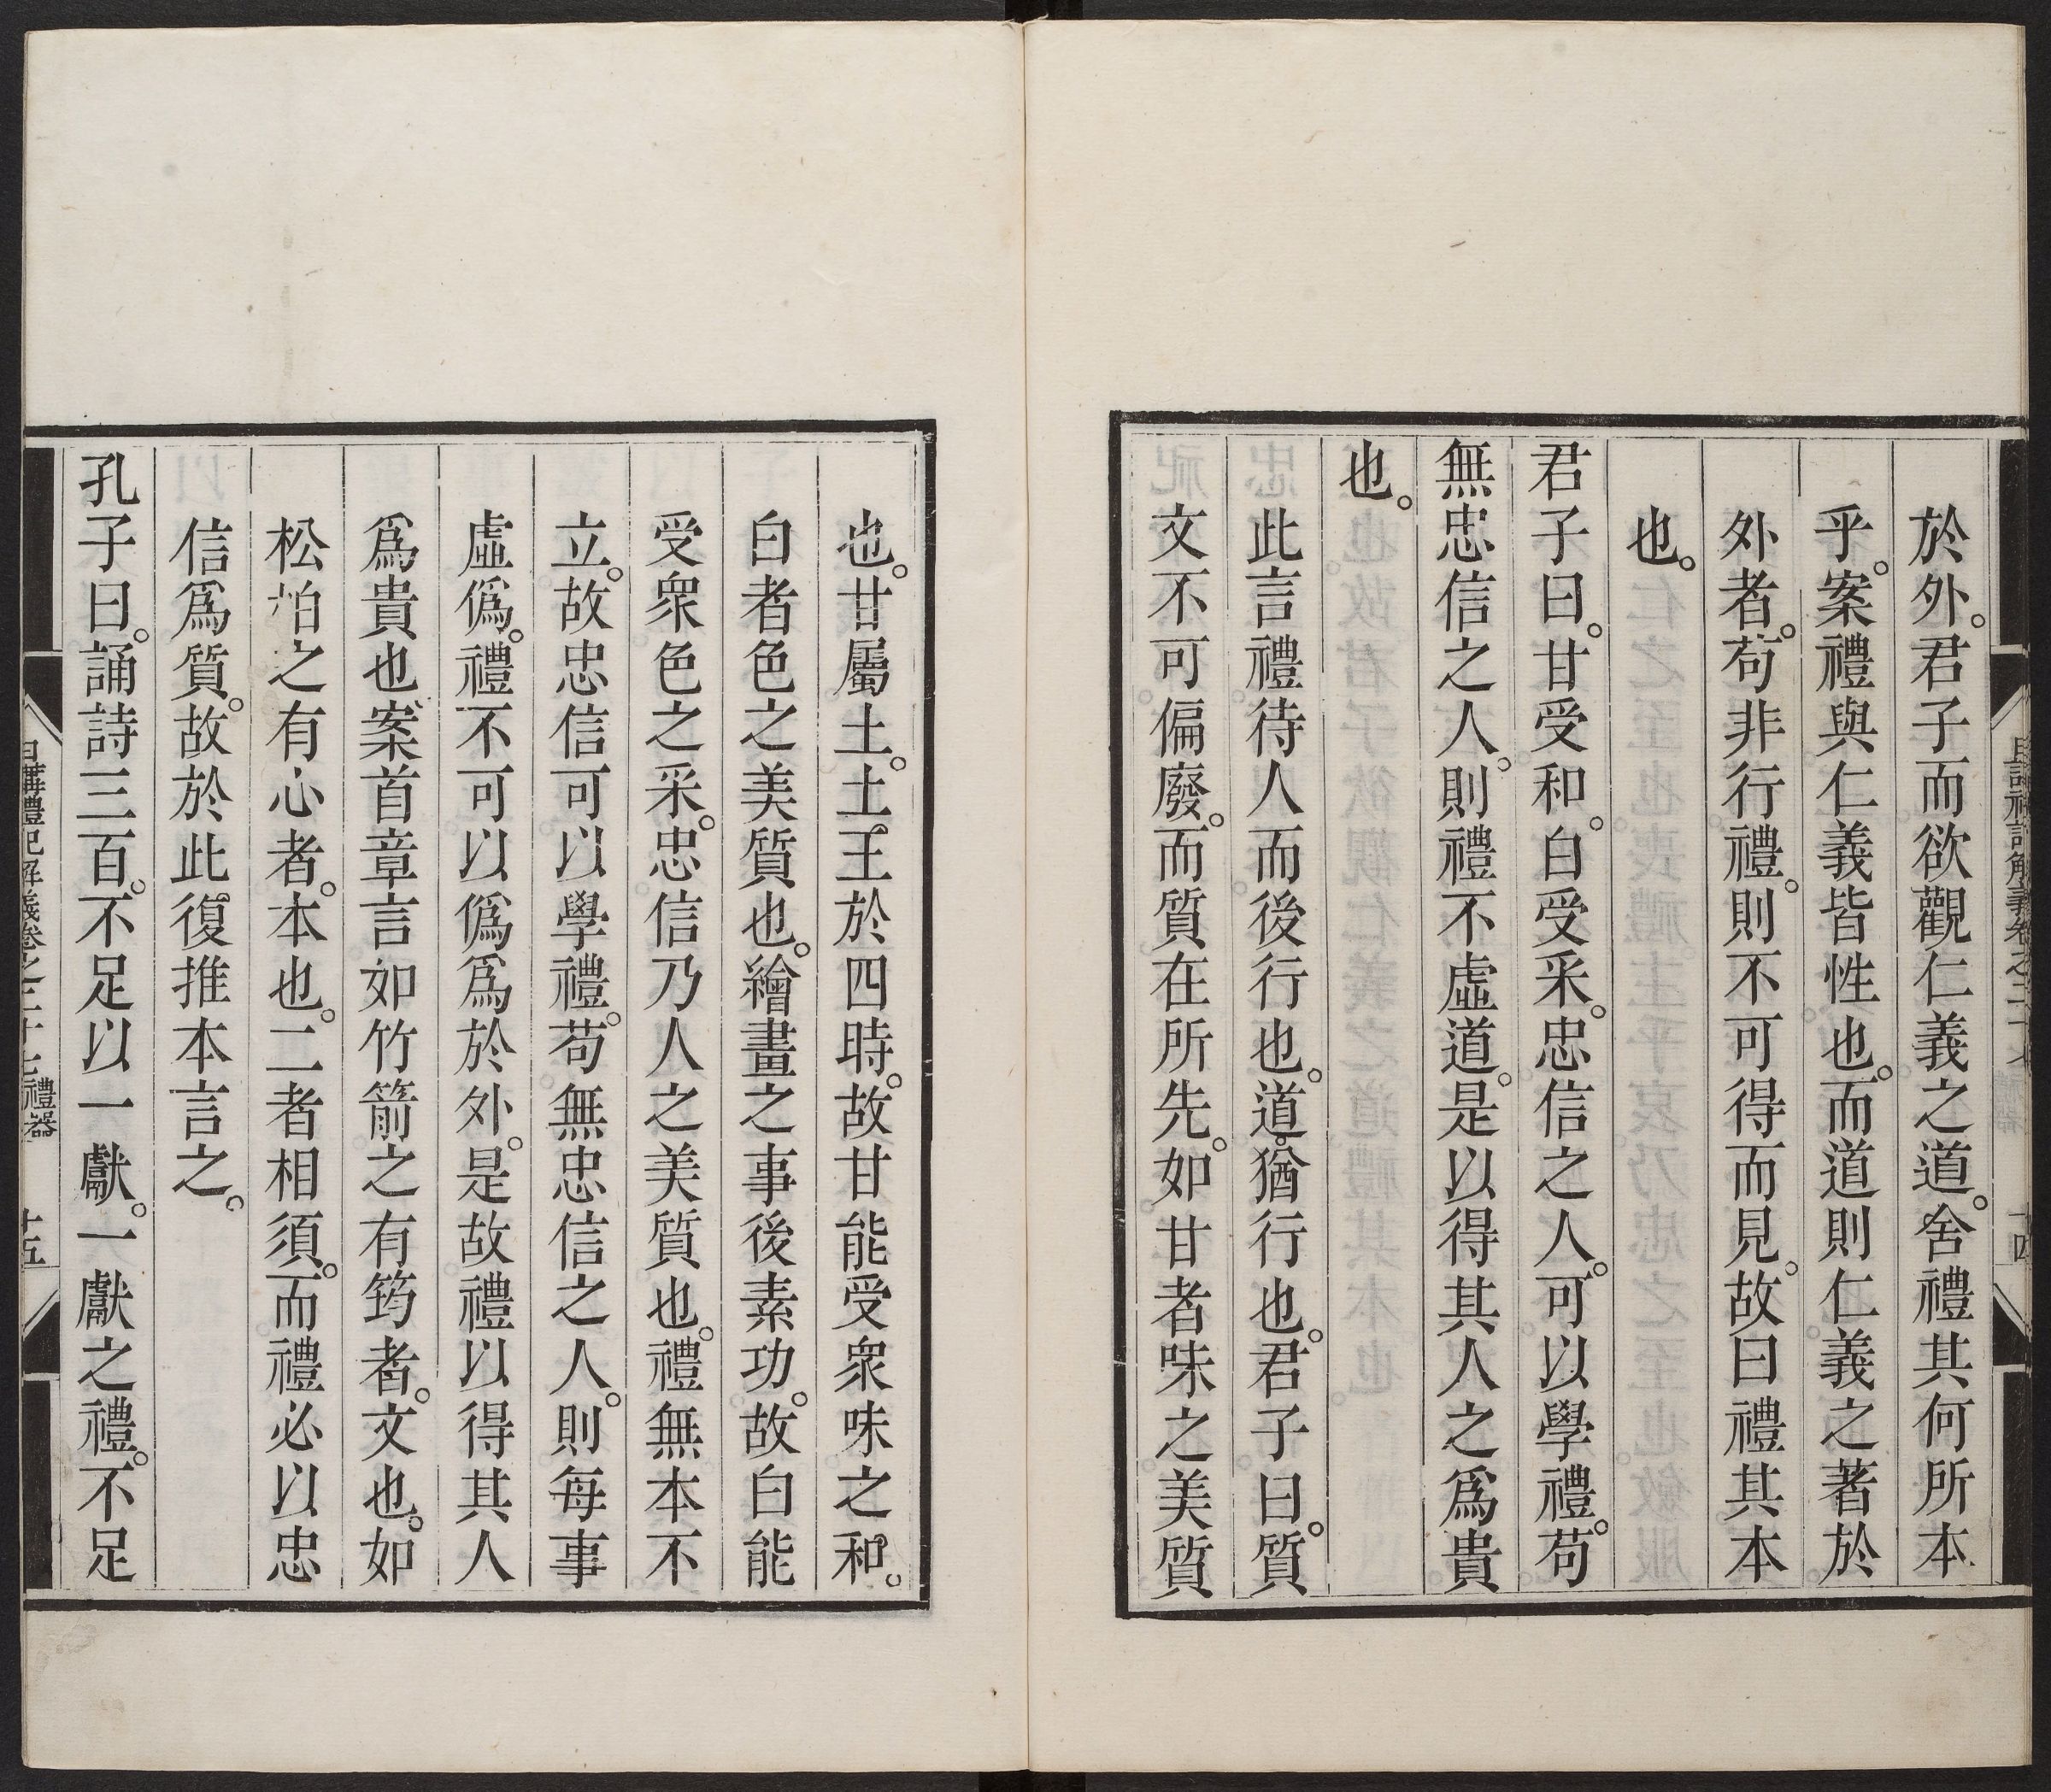 於外。君子而欲觀仁義之道。舍禮其何所本
乎。案禮與仁義皆性也。而道則仁義之著於
外者。苟非行禮。則不可得而見。故曰禮其本
也。
君子曰。甘受和。白受采。忠信之人。可以學禮。苟
無忠信之人。則禮不虛道。是以得其人之爲貴
也。
此言禮待人而後行也。道。猶行也。君子曰。質
文不可偏廢。而質在所先。如甘者味之美質
也。甘屬土。土王於四時。故甘能受衆味之和。
白者色之美質也。繪畫之事後素功。故白能
受衆色之采。忠信乃人之美質也。禮無本不
立。故忠信可以學禮。苟無忠信之人。則每事
虛僞。禮不可以僞爲於外。是故禮以得其人
爲貴也。案首章言如竹箭之有筠者。文也。如
松柏之有心者。本也。二者相須。而禮必以忠
信爲質。故於此復推本言之。
孔子曰。誦詩三百。不足以一獻。一獻之禮。不足
日講禮記解義卷之二十七 禮器 十五